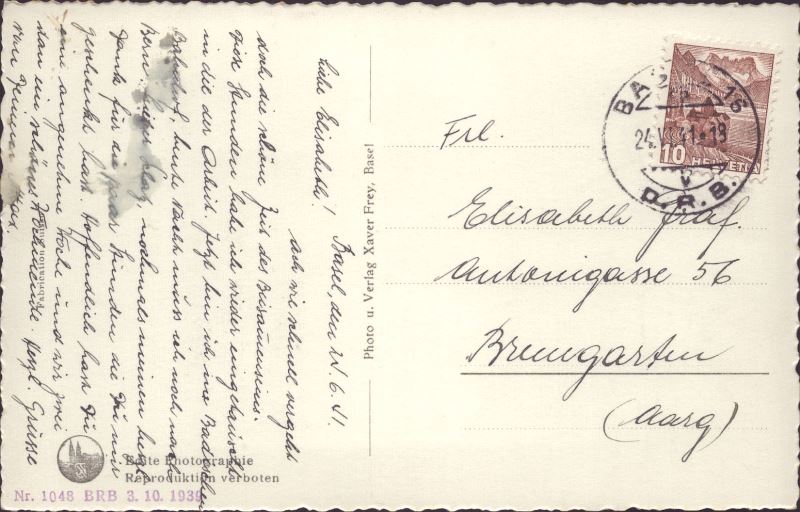 Basel, den 24. 6. 41.
Liebe Elisabeth!
Ach wie schnell vergeht
doch die schöne Zeit des Beisammenseins.
Stunden habe ich wieder eingetauscht
in die der Arbeit. Jetzt bin ich im Badischen
Bahnhof, heute Nacht muss ich noch nach
Bern. nochmals meinen herzl.
Dank für die paar Stunden die Du mir
geschenkt hast. Hoffentlich hast Du
eine angenehme Woche und wir zwei
dann ein schönes Wochenende. Herzl. Grüsse
von Deinem Max.
Photo u. Verlag Xaver Frey, Basel
Echte Photographie
Reproduktion verboten
Nr. 1048 BRB 3. 10. 1939
BASEL 16
24.VI.41-18
D.R.B.
10 HELVETIA
Frl.
Elisabeth Graf.
Antonigasse 56
Bremgarten
(Aarg)